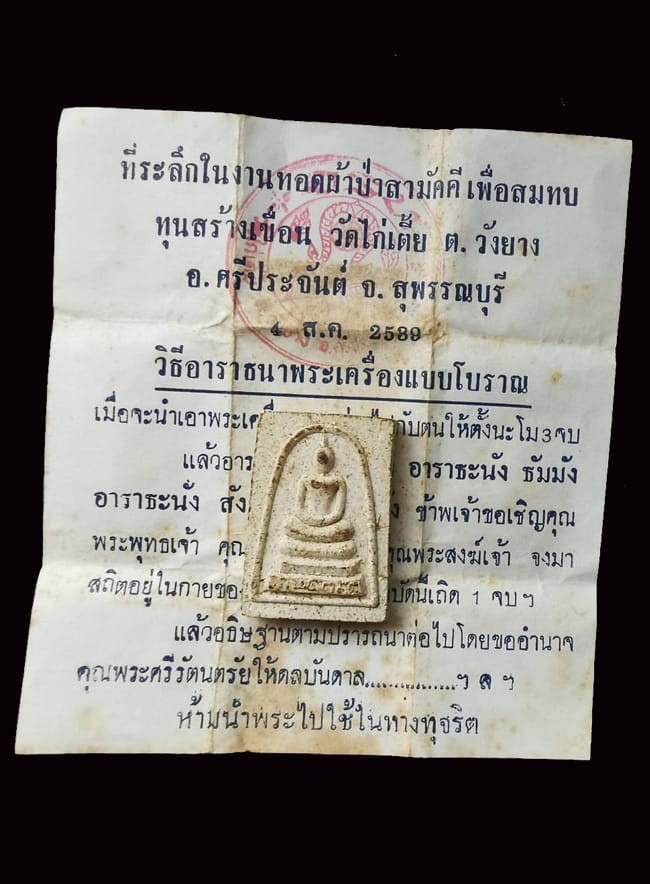 ที่ระลึกในงานทอดผ้าป่าสามัคคี เพื่อสมทบ
ทุนสร้างเขื่อน วัดไก่เตี้ย ต. วังยาง
อ. ศรีประจันต์ จ. สุพรรณบุรี
4 ส.ค. 2539
วิธีอาราธนาพระเครื่องแบบโบราณ
เมื่อจะนำเอาพระ กับตนให้ตั้งนะโม3จบ
อาราธะนัง ธัมมัง
อาราธะนัง ข้าพเจ้าขอเชิญคุณ
พระพุทธเจ้า คุณพระสงฆ์เจ้า จงมา
สถิตอยู่ในกาย บัดนี้เถิด 1 จบฯ
แล้วอธิษฐานตามปรารถนาต่อไปโดยขออำนาจ
คุณพระศรีรัตนตรัยให้ดลบันดาล................ฯ ล ฯ
ห้ามนำพระไปใช้ในทางทุจริต